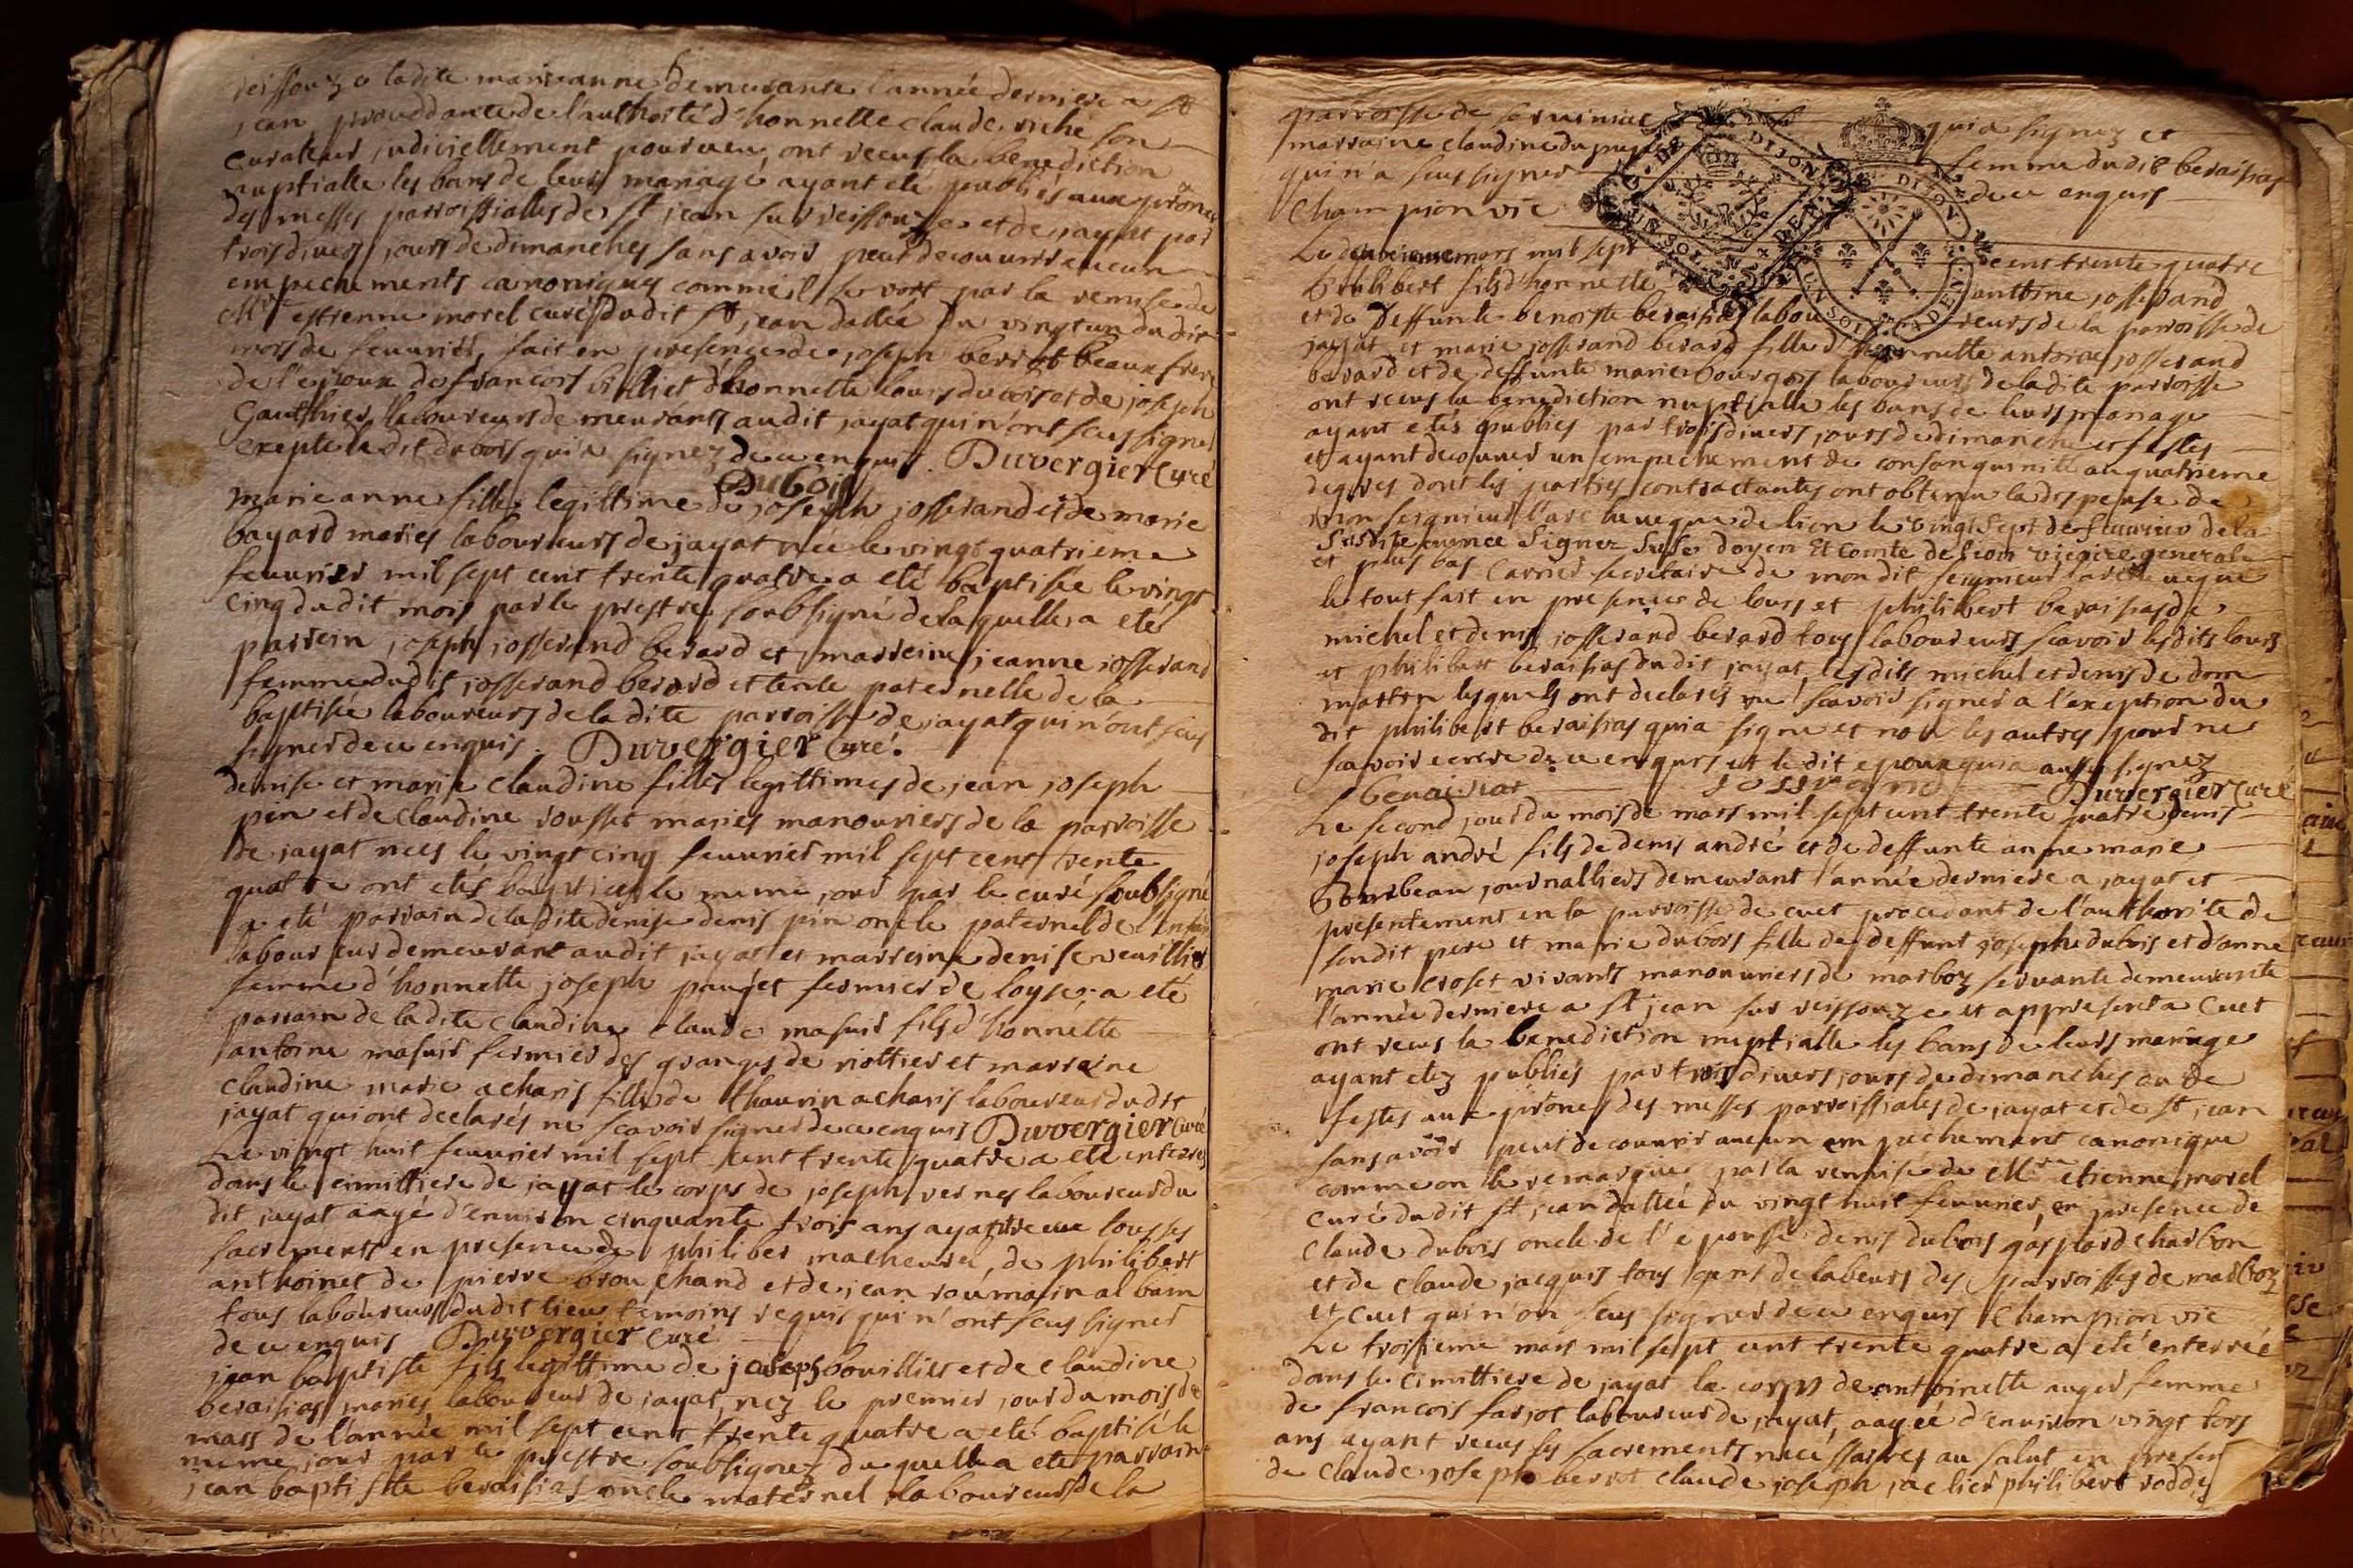 reissouze ladite marieanne demeurante l'année derniere a st
jean proceddante de l'authorité d'honnette claude riche son
curateur judiciellement pourveu, ont receus la benediction
nuptialle les bans de leurs mariage ayant eté publiés aux prônes
des messes parroissialles de st jean sur reissouze et de jayat par
trois divers jours de dimanches sans avoir peut decouvrir aucun
empechements canoniques comme il se voit par la remise de
Mre estienne morel curé dudit st jean dattée du vingt un du dit
mois de feuvrier, fait en presence de joseph berrot beaux frere
de l'epoux de francois billiet d'honnette louis dubois et de joseph
Gauthier laboureurs demeurants audit jayat qui n'ont sceus signer
excepte ledit dubois qui a signez de ce enquis. Duvergier Curé
Dubois
marie anne fille legittime de joseph josserand et de marie
bayard mariés laboureurs de jayat née le vingt quatrieme
feuvrier mil sept cent trente quatre a eté baptisée le vingt
cinq dudit mois par le prestre soubsigné de laquelle a eté
parrein joseph josserand berard et marreine jeanne josserand
femme dudit josserand berard et tente paternelle de la
baptisée laboureurs de ladite parroisse de jayat qui n'ont sceus
signer de ce enquis. Duvergier Curé.
denise et marie claudine filles legittimes de jean joseph
pin et de claudine rousset mariés manouvriers de la parroisse
de jayat nees le vingt cinq feuvrier mil sept cent trente
quatre ont etés baptisees le meme jour par le curé soubsigné
a eté parrain de ladite denise denis pin oncle paternel de l'enfant
laboureur demeurant audit jayat et marreine denise veuillier
femme d'honnette joseph pauget fermier de loyse, a eté
parrain de ladite claudine claude masuir fils d'honnette
antoine masuir fermier des granges de viottier et marraine
claudine marie acharis fille de thaurin acharis laboureur dudit
jayat qui ont declarés ne scavoir signer de ce enquis Duvergier Curé
Le vingt huit feuvrier mil sept cent trente quatre a eté enterrés
dans le cimittiere de jayat le corps de joseph vernes laboureur du
dit jayat aagé d'environ cinquante trois ans ayant receue tous ses
sacrements en presence de philiber macheurel, de philibert
anthoinet de pierre brouchand et de jean roumain albain
tous laboureurs dudit lieu temoins requis qui n'ont sceus signer
de ce enquis Duvergier Curé
jean baptiste fils legittime de joseph bouillier et de claudine
beraisias mariés laboureur de jayat, nez le premier jour du mois de
mars de l'année mil sept cent trente quatre a eté baptisé le
meme jour par le prestre soubsignez duquelle a eté parrain
jean baptiste beraisias oncle maternel laboureurs de la
parroisse de qui a signez et
marraine claudine dupuper femme dudit beraisias
qui n'a sceus signer de ce enquis
Champion vic
Le deuxieme mars mil sept cent trente quatre
philibert fils d'honnette anthoine josserand
et de deffunte benoiste beraisias laboureurs de la parroisse de
jayat et marie josserand berard fille d'honnette antoine josserand
berard et de deffunte marie bourgois laboureurs de ladite parroisse
ont receus la benediction nuptialle les bans de leurs mariage
ayant etés publiés par trois divers jours de dimanche et festes
et ayant decouvert un empechement de consanguinité au quatrieme
degrés dont les parties contractantes ont obtenu la dispense de
monseigneur l'archeveque de lion le vingt sept de feuvrier de la
susdite annee Signez doyen Et Comte de lion vicaire general
et plus bas Carrier secretaire de mondit seigneur l'archeveque
le tout fait en presence de louis et philibert beraisias de
michel et denis josserand berard tous laboureurs scavoir lesdits louis
et philibert beraisias dudit jayat, lesdits michel et denis de dom
martin lesquels ont declarés ne scavoir signer a l'exeption du
dit philibert beraisias qui a signé et non les autres pour ne
scavoir ecrire de ce enquis et le dit epoux qui a aussy signez
beraisiat josserand Duvergier Curé
Le second jour du mois de mars mil sept cent trente quatre denis
joseph andré fils de denis andré et de deffunte anne marie
Gombeau journalliers demeurant l'année derniere a jayat et
presentement en la parroisse de cuet procedant de l'authorite de
sondit pere et marie dubois fille de deffunt joseph dubois et d'anne
marie croset vivants manouvriers de marboz servante demeurante
l'année derniere a st jean sur reissouze et appresent a Cuet
ont receus la benediction nuptialle les bans de leurs mariage
ayant etez publiés par trois divers jours de dimanches ou de
festes aux prônes des messes parroissiales de jayat et de st jean
sans avoir peut decouvrir aucun empechement canonique
comme on le remarque par la remise de Mre etienne morel
Curé dudit st jean dattée du vingt huit feuvrier, en presence de
Claude dubois oncle de l'epousé denis dubois gaspard charbon
et de claude jacquis tous gens de labeurs des parroisses de marboz
et Cuet qui n'on sceus signer de ce enquis Champion vic
Le troisieme mars mil sept cent trente quatre a eté enterrée
dans le cimittiere de jayat le corps de antoinette auger femme
de francois farjot laboureur de jayat, aagée d'environ vingt
ans ayant receus ses sacrements necessaires au salut en presen
de Claude joseph berrot claude joseph jaclier philibert roddes